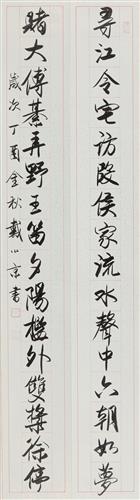 寻江令宅访段侯家流水聲中六朝如夢
賭大傅棊弄野王笛夕陽樓外雙槳徐停
歲次丁酉金秋戴小京書